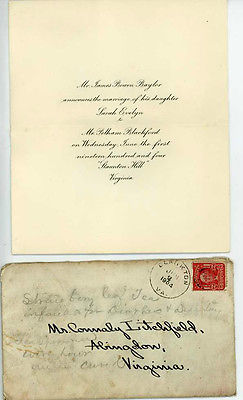 Mr. James Bowen Baylor
announces the marriage of his daughter
Sarah Evelyn
to
Mr. Pelham Blackford
on Wednesday, June the first
nineteen hundred and four
"Staunton Hill"
Virginia
VA.
1904
Strawberry Leaf Tea
Mr. Connaly Litchfield,
Abingdon,
Virginia.